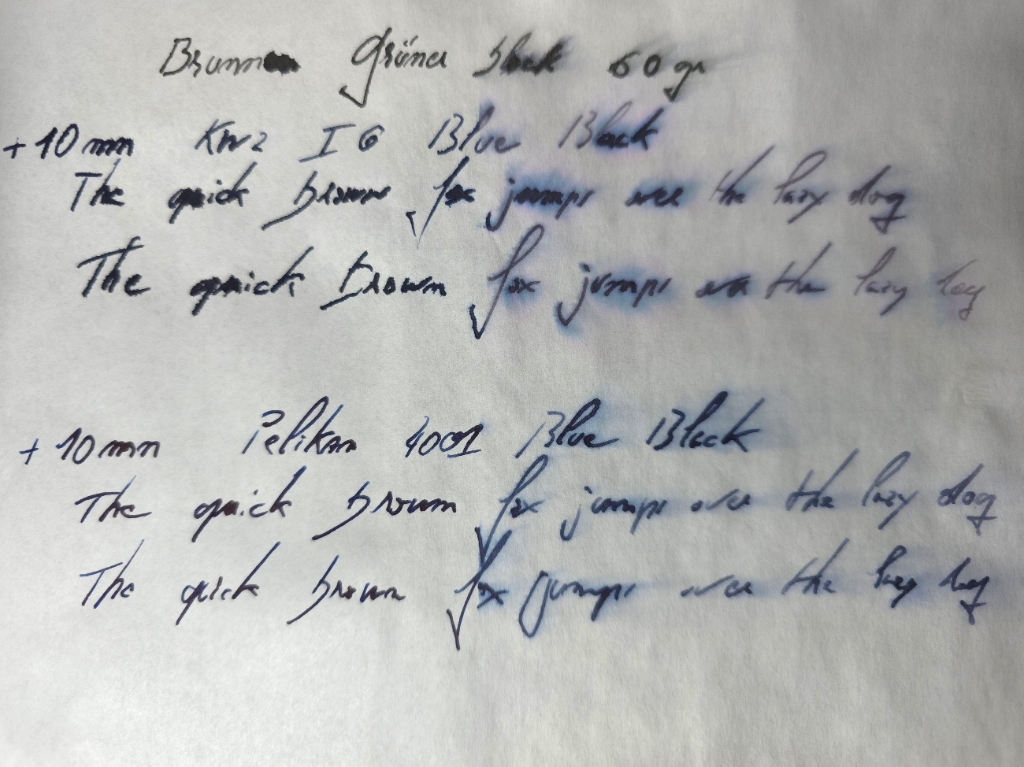 Brunnen Grüner Block 60 gr
+10 mn KWZ IG Blue Black
The quick brown fox jumps over the lazy dog
The quick brown fox jumps over the lazy dog
+10 mn Pelikan 4001 Blue Black
The quick brown fox jumps over the lazy dog
The quick brown fox jumps over the lazy dog